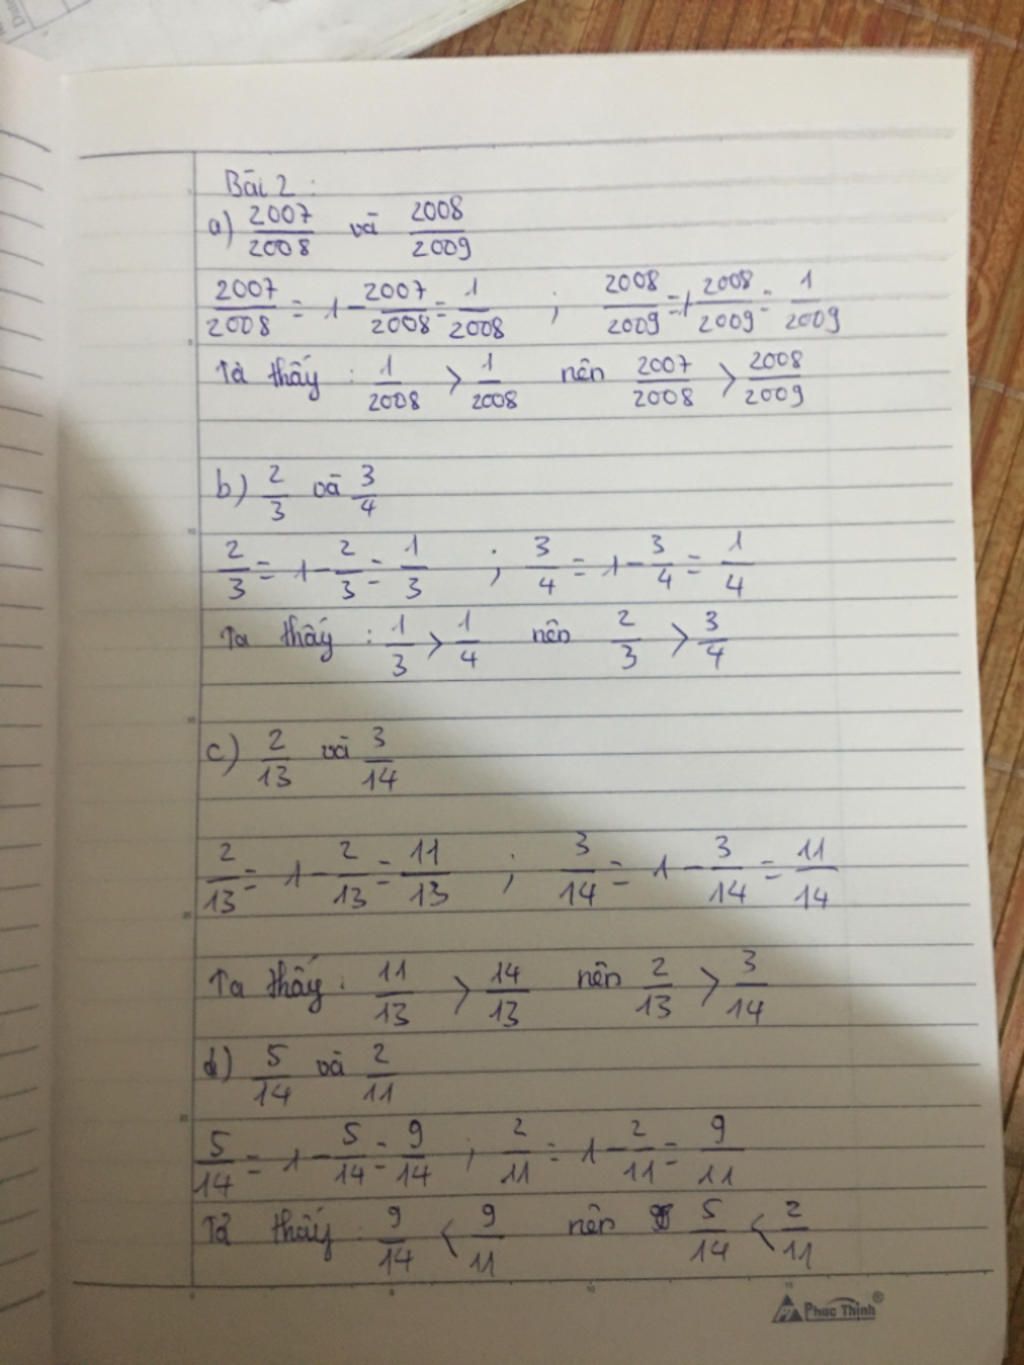 Bài 2 :
a) 2007/2008 và 2008/2009
2007/2008 = 1 - 2007/2008 = 1/2008 ; 2008/2009 = 1 2008/2009 = 1/2009
Ta thấy : 1/2008 > 1/2008 nên 2007/2008 > 2008/2009
b) 2/3 và 3/4
2/3 = 1 - 2/3 = 1/3 ; 3/4 = 1 - 3/4 = 1/4
Ta thấy : 1/3 > 1/4 nên 2/3 > 3/4
c) 2/13 và 3/14
2/13 = 1 - 2/13 = 11/13 ; 3/14 = 1 - 3/14 = 11/14
Ta thấy : 11/13 > 14/13 nên 2/13 > 3/14
d) 5/14 và 2/11
5/14 = 1 - 5/14 = 9/14 ; 2/11 = 1 - 2/11 = 9/11
Ta thấy : 9/14 < 9/11 nên 5/14 < 2/11
Phuc Thinh®